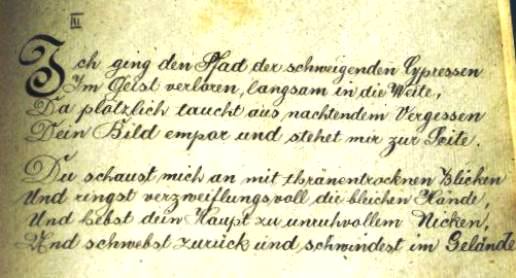 III
Ich ging den Pfad der schweigenden Cypressen
Im Geist verloren, langsam in die Weite,
Da plötzlich taucht aus nachtendem Vergessen
Dein Bild empor und stehet mir zur Seite.
Du schaust mich an mit thränentrocknen Blicken
Und ringst verzweiflungsvoll die bleichen Hände,
Und hebst dein Haupt zu unruhvollem Nicken,
Und schwebst zurück und schwindest im Gelände